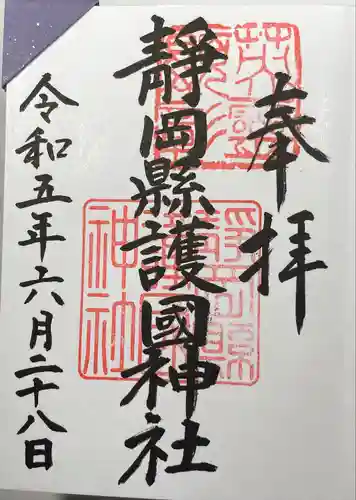 奉拝
靜岡縣護國神社
令和五年六月二十八日